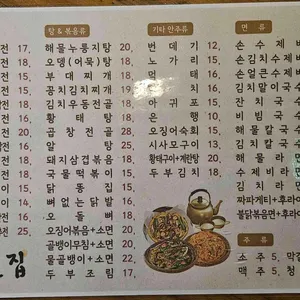 탕 & 볶음류
해물누룽지탕 20,
오뎅(어묵)탕 18,
부대찌개 18,
꽁치김치찌개 18,
김치우동전골 18,
황태탕 18,
곱창전골 20,
알탕 18,
돼지삼겹볶음 18,
국물떡볶이 15,
닭똥집 15,
뼈없는닭발 18,
오돌뼈 18,
오징어볶음+소면 20,
골뱅이무침+소면 20,
물골뱅이+소면 22,
두부조림 18,
전 17,
전 18,
전 15,
전 15,
전 18,
전 18,
전 20,
전 18,
전 18,
전 18,
이 15,
이 18,
이 18,
25,
집
기타 안주류
번데기 12,
노가리 15,
먹태
아귀포
은행
오징어숙회
시사모구이
황태구이+계란탕 20,
두부김치 18,
면류
손수제비
손김치수제비
손얼큰수제비
김치말이국수
잔치국수
비빔국수
해물칼국수
김치칼국수
해물라면
수제비라면
김치라면
짜파게티+후라이
불닭볶음면+후라이
주류
소주 5, 막걸
맥주 5, 청